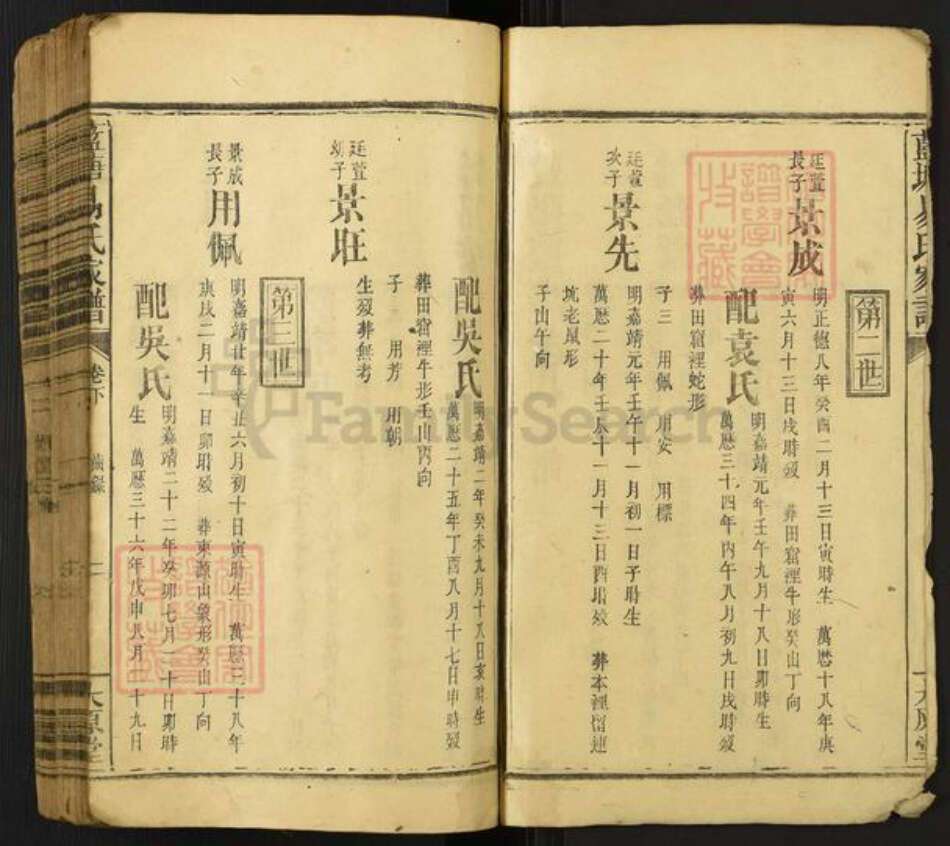 第二世
廷萱長子景成
明正德八年癸酉二月十三日寅時生 萬曆十八年庚
寅六月十三日戌時歿 葬田窟浬牛形癸山丁向
配袁氏
明嘉靖元年壬午九月十八日卯時生
萬曆三十四年丙午八月初九日戌時歿
葬田窟浬蛇形
子三 用佩 用安 用標
廷萱次子景先
明嘉靖元年壬午十一月初一日子時生
萬曆二十年壬辰十一月十三日酉時歿 葬本浬窗連
坑老鼠形
子山午向
配吳氏
明嘉靖二年癸未九月十八日亥時生
萬曆二十五年丁酉八月十七日申時歿
葬田窟浬牛形壬山丙向
子 用芳 用朝
廷萱幼子景旺
生歿葬無考
第三世
景成長子用佩
明嘉靖廿年辛丑六月初十日寅時生 萬曆三十八年
庚戌二月十一日卯時歿 葬東源山象形癸山丁向
配吳氏
明嘉靖二十二年癸卯七月二十日卯時
生 萬曆三十六年戊申八月二十九日
藍塘易氏家譜 卷下 太原堂
譜學會收藏
FamilySearch